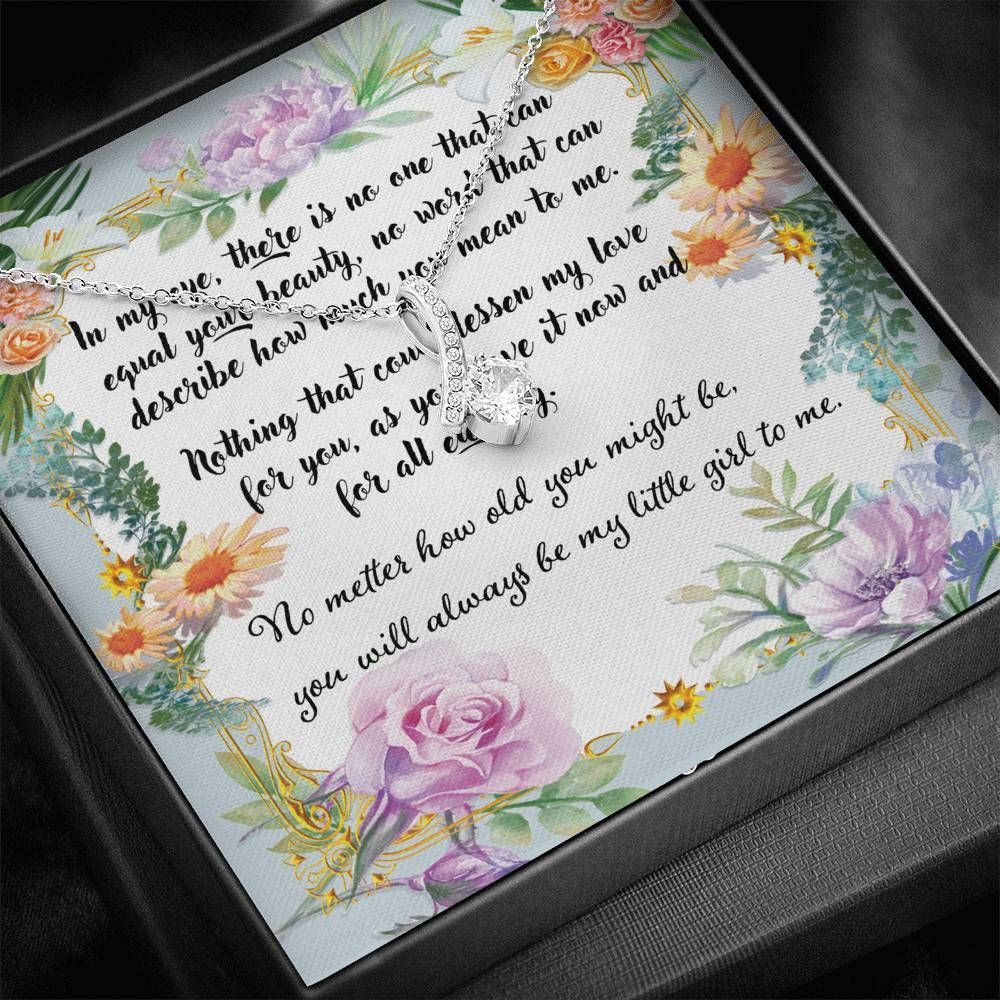 In my eye, there is no one that can
equal your beauty, no word that can
describe how much you mean to me.
Nothing that lessen my love
for you, as it now and
for all
No metter how old you might be,
you will always be my little girl to me.